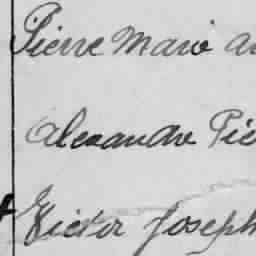 Pierre Marie
Alexandre
Victor Joseph